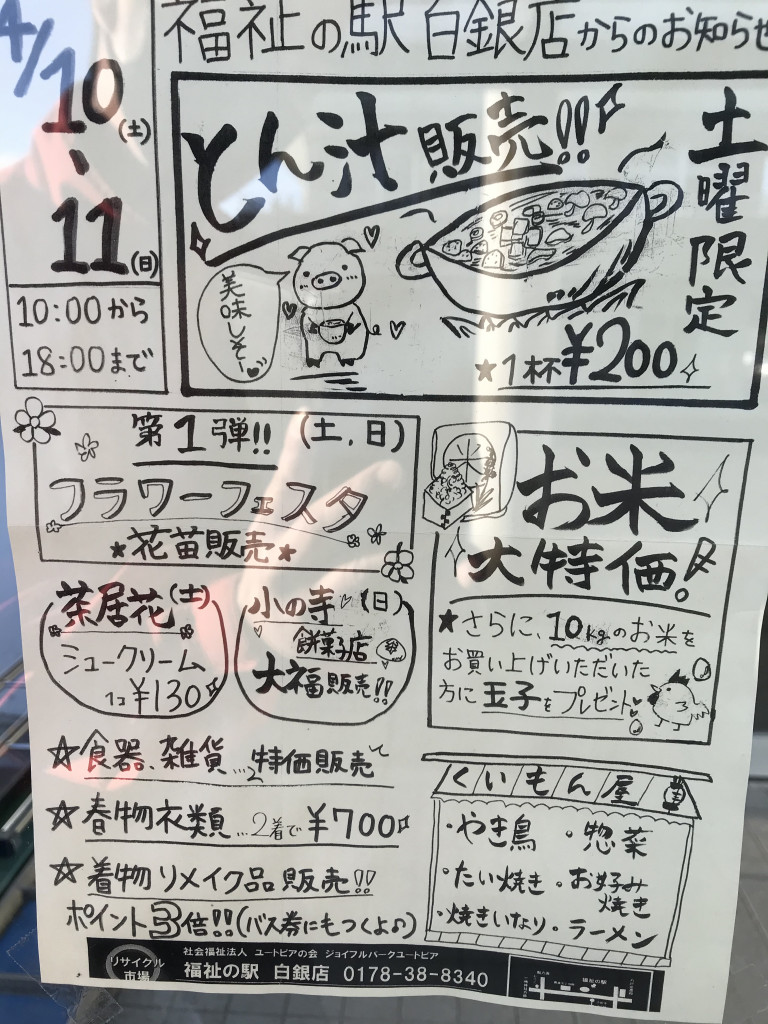 福祉の駅 白銀店からのお知らせ
4/10(土)
11(日)
10:00から
18:00まで
とん汁 販売!!
土曜限定
美味しそー
★1杯¥200
第1弾!! (土,日)
フラワーフェスタ
★花苗販売★
お米
大特価!
★さらに、10kgのお米を
お買い上げいただいた
方に玉子をプレゼント
茶居花(土)
シュークリーム
1コ¥130
小の寺 (日)
餅菓子店
大福販売!!
☆食器、雑貨...特価販売
☆春物衣類...2着で¥700
☆着物リメイク品販売!!
ポイント3倍!!(バス券にもつくよの)
くいもん屋
・やき鳥 ・惣菜
・たい焼き ・お好み焼き
・焼きいなり ・ラーメン
リサイクル市場
社会福祉法人 ユートピアの会 ジョイフルパークユートピア
福祉の駅 白銀店 0178-38-8340